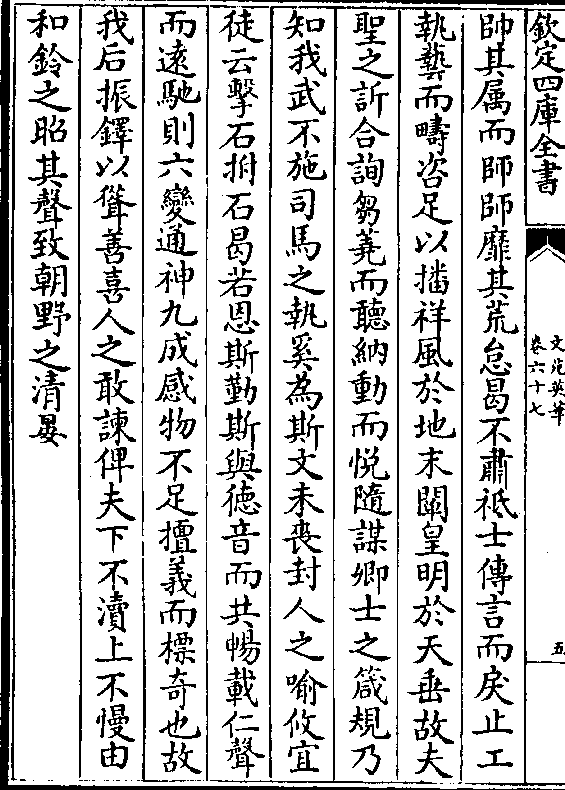 欽定四庫全書
文苑英華
卷六十七
五
帥其属而師師靡其荒怠曷不肅祗士傳言而戾止工
執藝而疇咨足以播祥風於地末闡皇明於天垂故夫
聖之訢合詢芻蕘而聽納動而悦隨謀卿士之箴規乃
知我武不施司馬之執奚為斯文未喪封人之喻攸宜
徒云擊石拊石曷若恩斯勤斯與徳音而共暢載仁聲
而遠馳則六變通神九成感物不足擅義而標奇也故
我后振鐸以聳善喜人之敢諫俾夫下不瀆上不慢由
和鈴之昭其聲致朝野之清晏